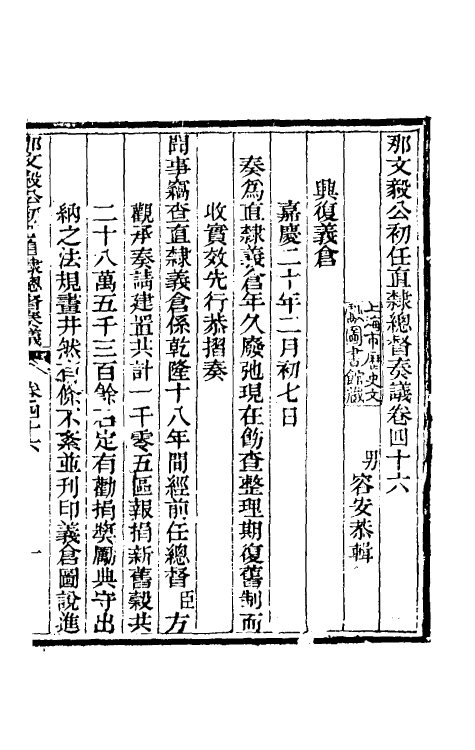 那文毅公初任直隸總督奏議卷四十六
上海市歷史文
獻圖書館藏
男
容安恭輯
興復義倉
嘉慶二十年二月初七日
奏為直隸義倉年久廢弛現在飭查整理期復舊制而
收實效先行恭摺奏
聞事竊查直隸義倉係乾隆十八年間經前任總督臣方
觀承奏請建置共計一千零五區報捐新舊穀共
二十八萬五千三百餘石定有勸捐獎勵典守出
納之法規畫井然有條不紊並刊印義倉圖說進
那文毅公初任直隸總督奏議
卷四十六
一